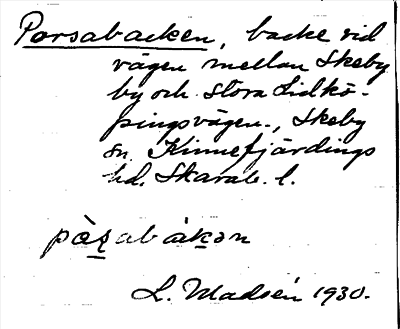 Porsabacken, backe vid
vägen mellan Skeby
by och stora Lidkö-
pingsvägen., Skeby
sn. Kinnefjärdings
hd. Skarab. l.
pàʂabàkən
L. Madsén 1930.